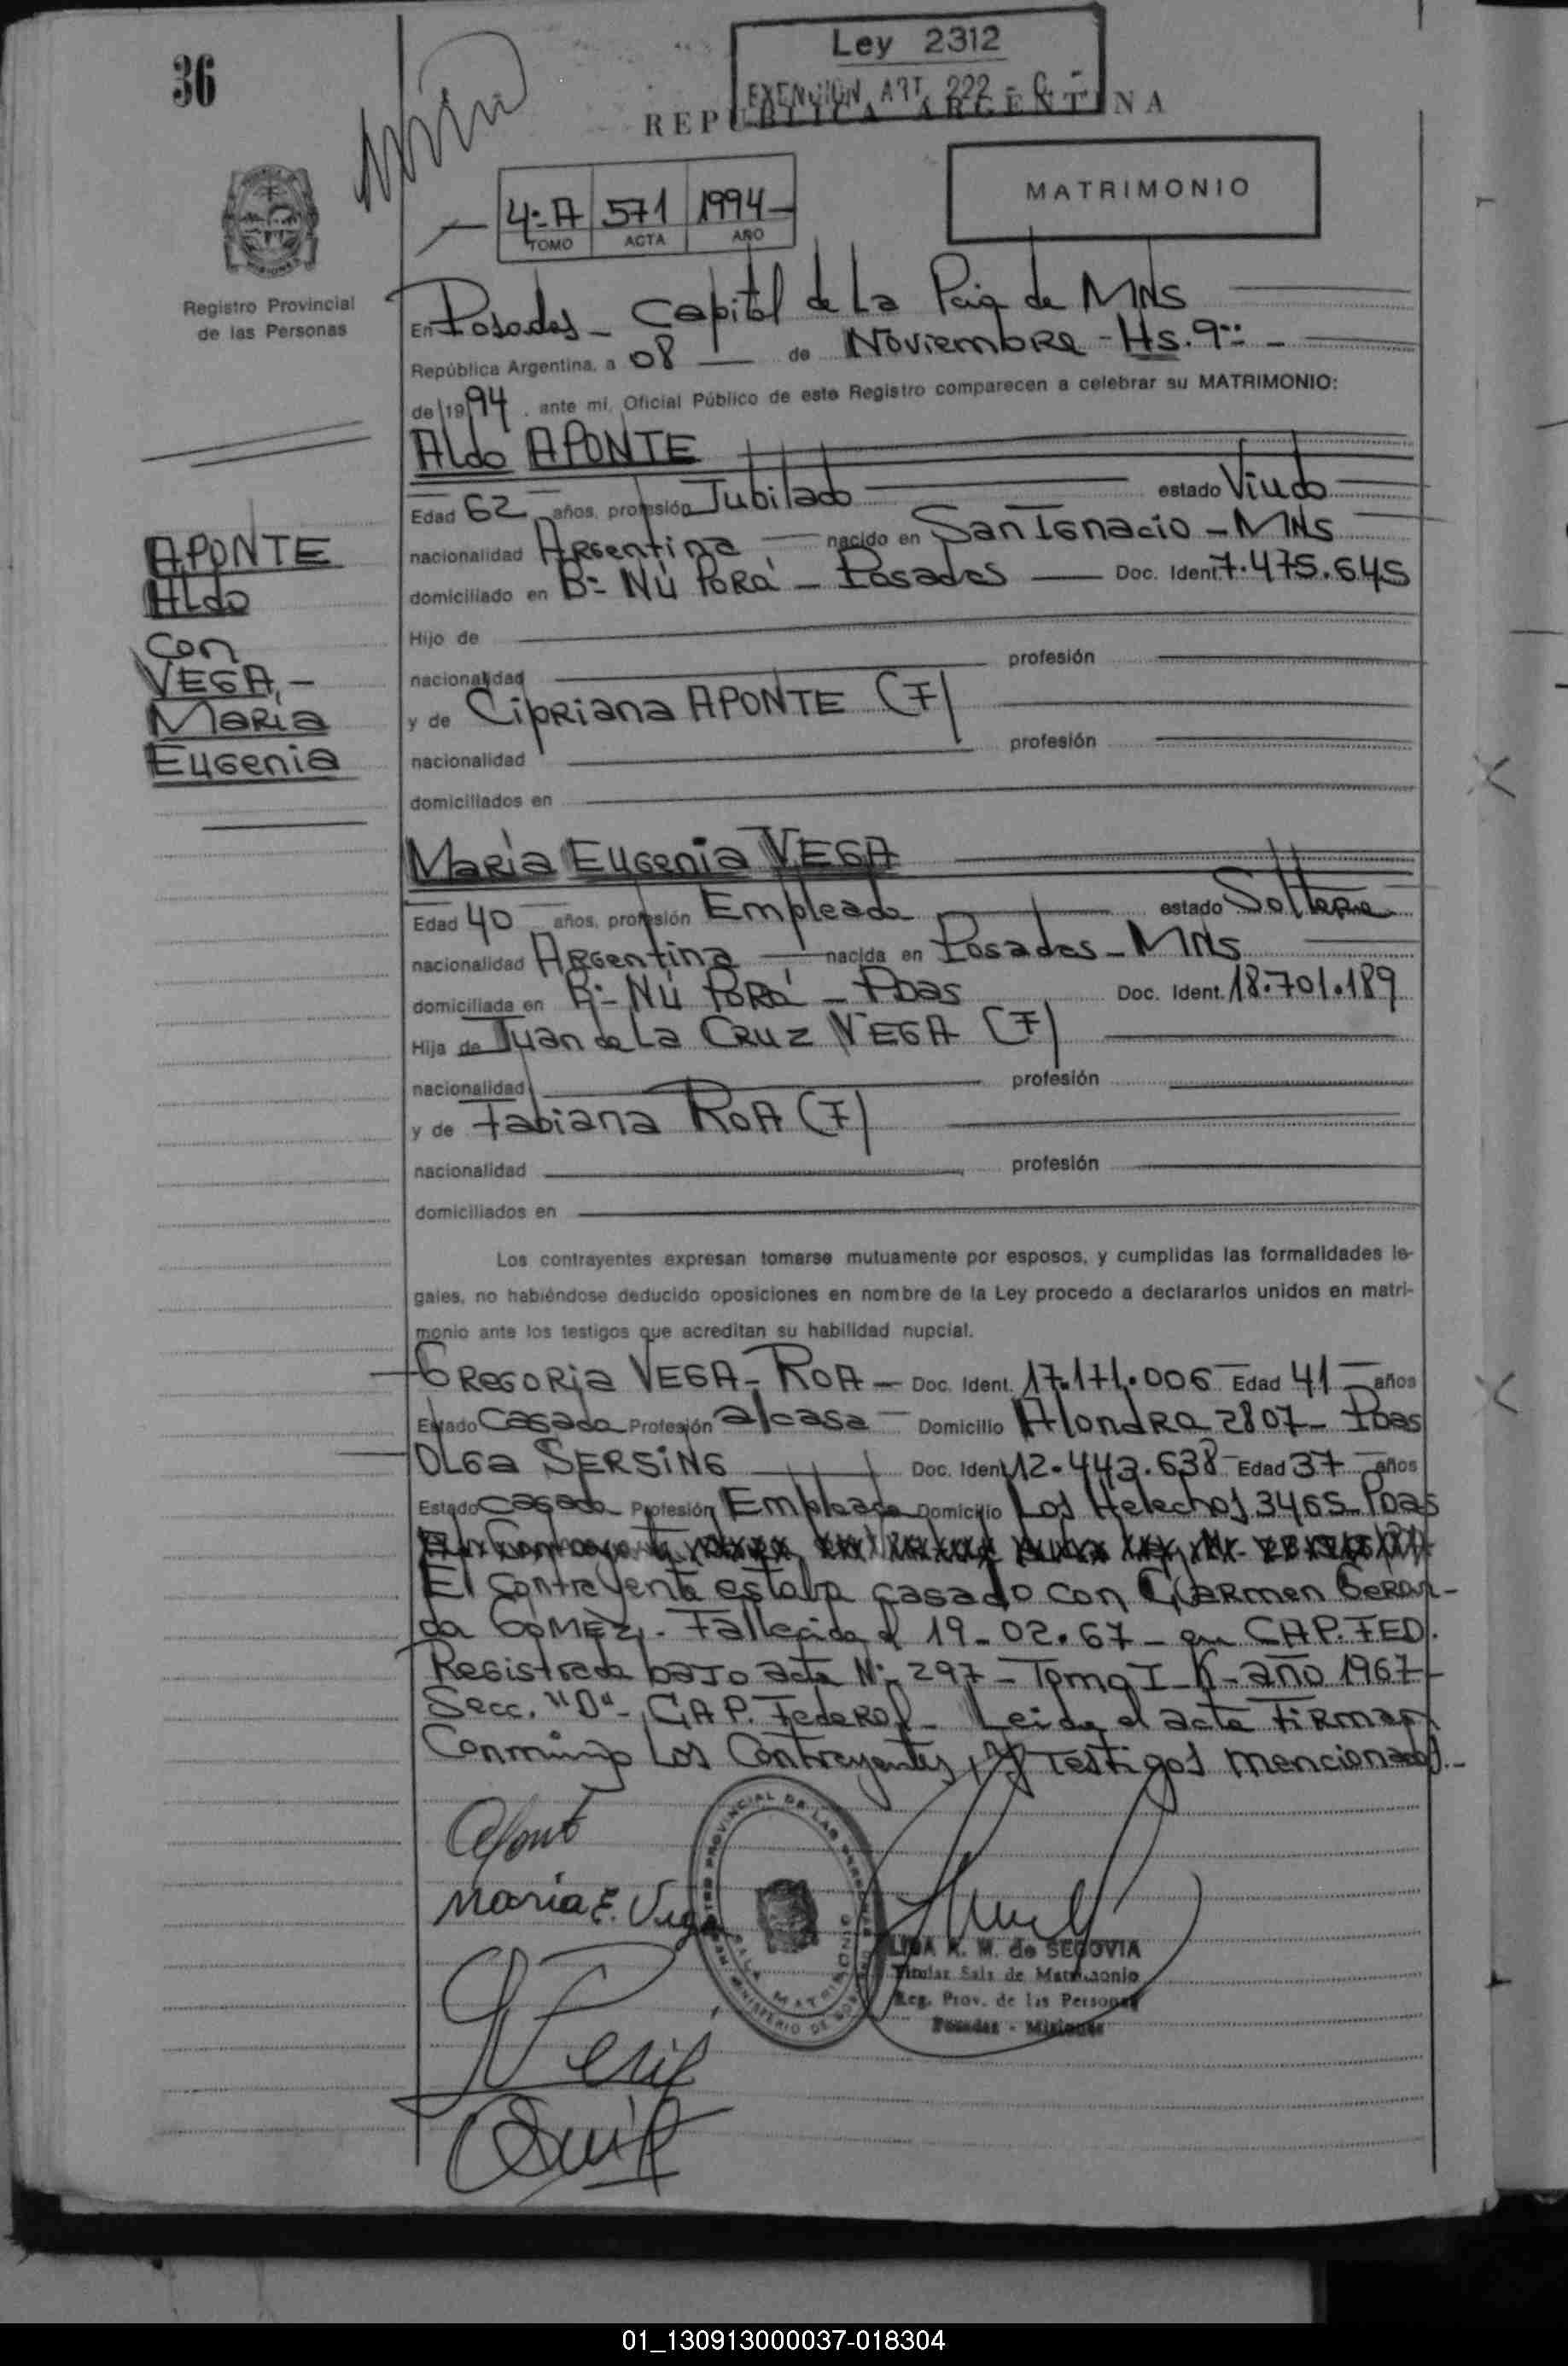 36
Ley 2312
EXENCION ART. 222 - C -
REPUBLICA ARGENTINA
MATRIMONIO
4º A 571 1994
TOMO ACTA AÑO
Registro Provincial
de las Personas
En Posadas - Capital de La Pcia de MNS
República Argentina, a 08 de Noviembre - Hs. 9
de 1994, ante mí, Oficial Público de este Registro comparecen a celebrar su MATRIMONIO:
Aldo APONTE
Edad 62 años, profesión Jubilado estado Viudo
nacionalidad Argentina nacido en San Ignacio - MNS
domiciliado en Bº Ñú Porá - Posadas Doc. Ident. 7.475.645
Hijo de
nacionalidad profesión
y de Cipriana APONTE (F)
nacionalidad profesión
domiciliados en
APONTE
Aldo
con
VEGA, -
María
Eugenia
María Eugenia VEGA
Edad 40 años, profesión Empleada estado Soltera
nacionalidad Argentina nacida en Posadas - MNS
domiciliada en Bº Ñú Porá - Pdas Doc. Ident. 18.701.189
Hija de Juan de La Cruz VEGA (F)
nacionalidad profesión
y de Fabiana ROA (F)
nacionalidad profesión
domiciliados en
Los contrayentes expresan tomarse mutuamente por esposos, y cumplidas las formalidades le-
gales, no habiéndose deducido oposiciones en nombre de la Ley procedo a declararlos unidos en matri-
monio ante los testigos que acreditan su habilidad nupcial.
Gregoria VEGA - ROA - Doc. Ident. 17.171.006 Edad 41 años
Estado Casada Profesión a/casa Domicilio Alondra 2807 - Pdas
Olga SERSING Doc. Ident. 12.443.638 Edad 37 años
Estado Casada Profesión Empleada Domicilio Los Helechos 3465 - Pdas
El Contrayente estaba casado con Carmen Gerar-
da GOMEZ, - Fallecida el 19-02.67 - en CAP. FED.
Registrada bajo acta Nº 297 - Tomo I K - año 1967 -
Secc. "D" - CAP. Federal - Leída el acta firman
Conmigo Los Contrayentes, y Testigos mencionados. -
María E. Vega
LIDA A. M. de SEGOVIA
Titular Sala de Matrimonio
Reg. Prov. de las Personas
Posadas - Misiones
01_130913000037-018304